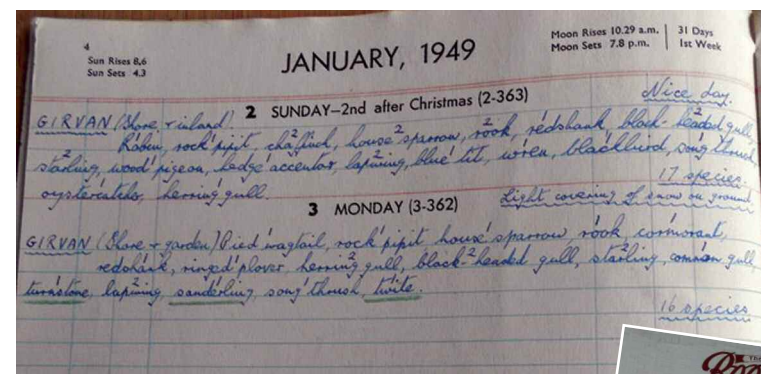 4
Sun Rises 8.6
Sun Sets 4.3
JANUARY, 1949
Moon Rises 10.29 a.m.
Moon Sets 7.8 p.m.
31 Days
1st Week
2 SUNDAY—2nd after Christmas (2-363)
Nice day.
GIRVAN (Shore + inland)
Robin, rock pipit, chaffinch, house sparrow, rook, redshank, black-headed gull,
starling, wood pigeon, hedge accentor, lapwing, blue tit, wren, blackbird, song thrush
oystercatcher, herring gull.
17 species.
3 MONDAY (3-362)
Light covering of snow on ground
GIRVAN (Shore + garden) Pied wagtail, rock pipit, house sparrow, rook, cormorant,
redshank, ringed plover, herring gull, black-headed gull, starling, common gull,
turnstone, lapwing, sanderling, song thrush, twite.
16 species